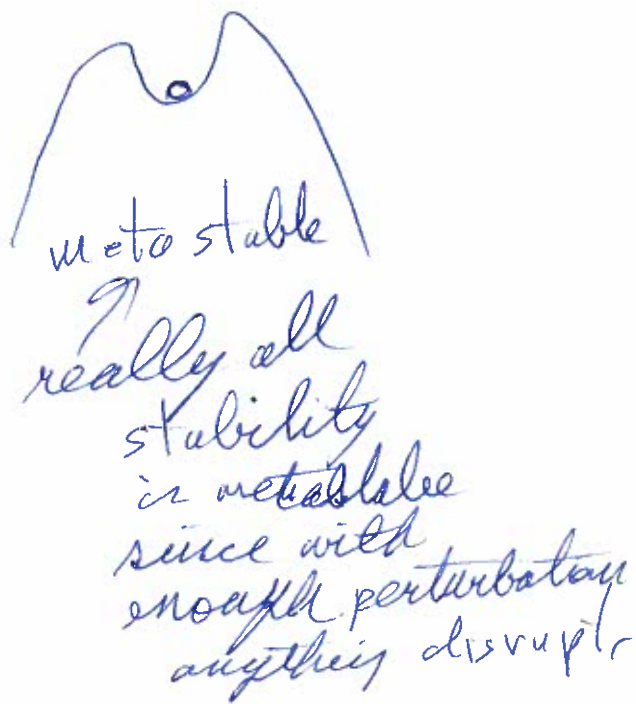 meta stable
really all
stability
is metastable
since with
enough perturbation
anything disrupts